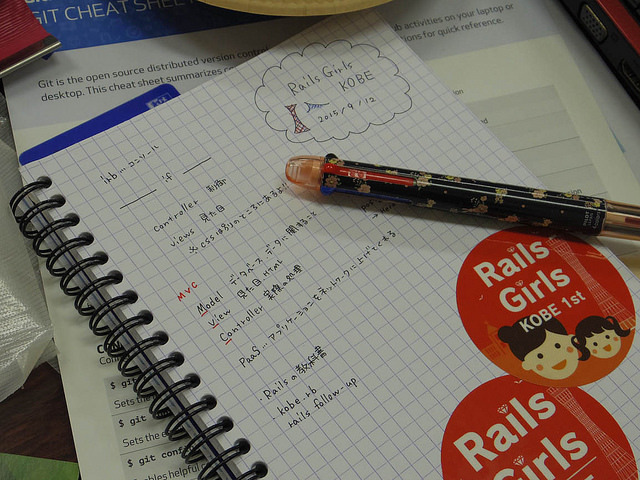 GIT CHEAT SHEET
Git is the open source distributed version contro
desktop. This cheat sheet summarizes c
b activities on your laptop or
ions for quick reference.
Rails Girls
KOBE
2015/9/12
irb … コンソール
if
Controller 制御
views 見た目
※ cssは別のところにあるよ!
MVC
Model データベース データに関すること
View 見た目 HTML
Controller 実際の処理
PaaS … アプリケーションをネットワークに上げてくれる
・Railsの教科書
・kobe-rb
rails follow-up
Rails
Girls
KOBE 1st
Rails
Girls
$ gi
Sets the
$ git
Sets the e
$ git conf
bles helpful